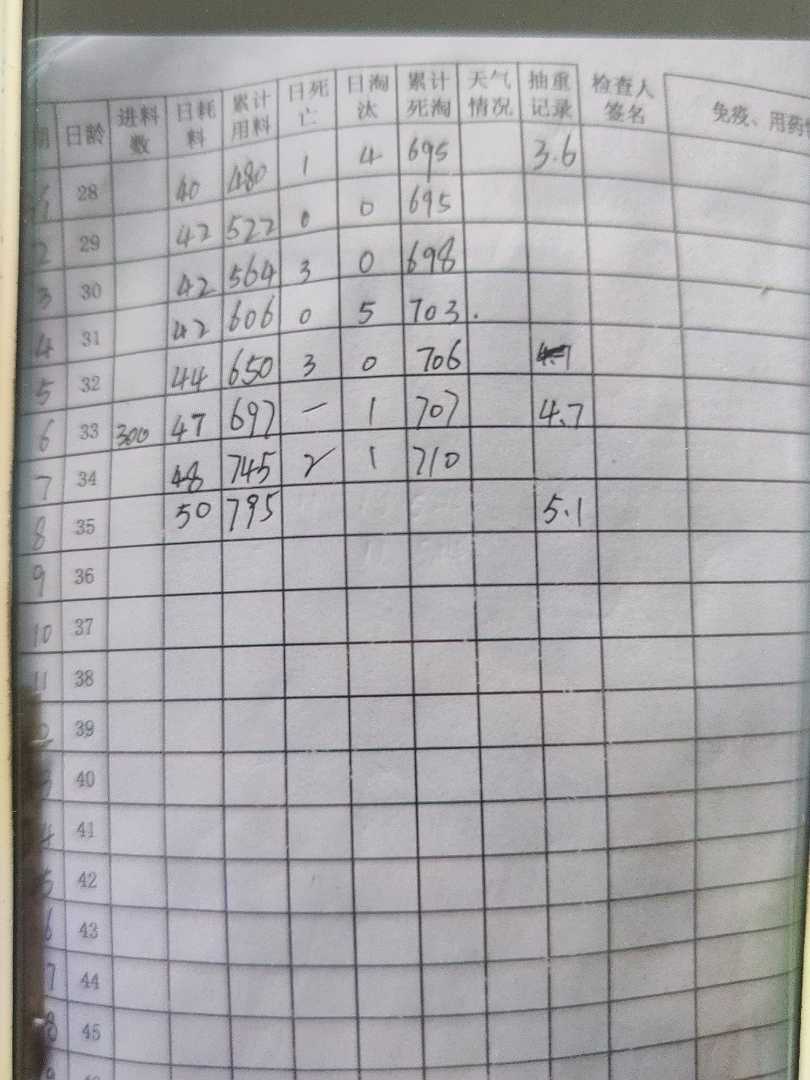 期 日龄 进料数 日耗料 累计用料 日死亡 日淘汰 累计死淘 天气情况 抽重记录 检查人签名 免疫、用药
28 40 480 1 4 695 3.6
2 29 42 522 0 0 695
3 30 42 564 3 0 698
4 31 42 606 0 5 703.
5 32 44 650 3 0 706
6 33 300 47 697 — 1 707 4.7
7 34 48 745 2 1 710
8 35 50 795 5.1
9 36
10 37
11 38
39
3 40
4 41
5 42
6 43
7 44
8 45